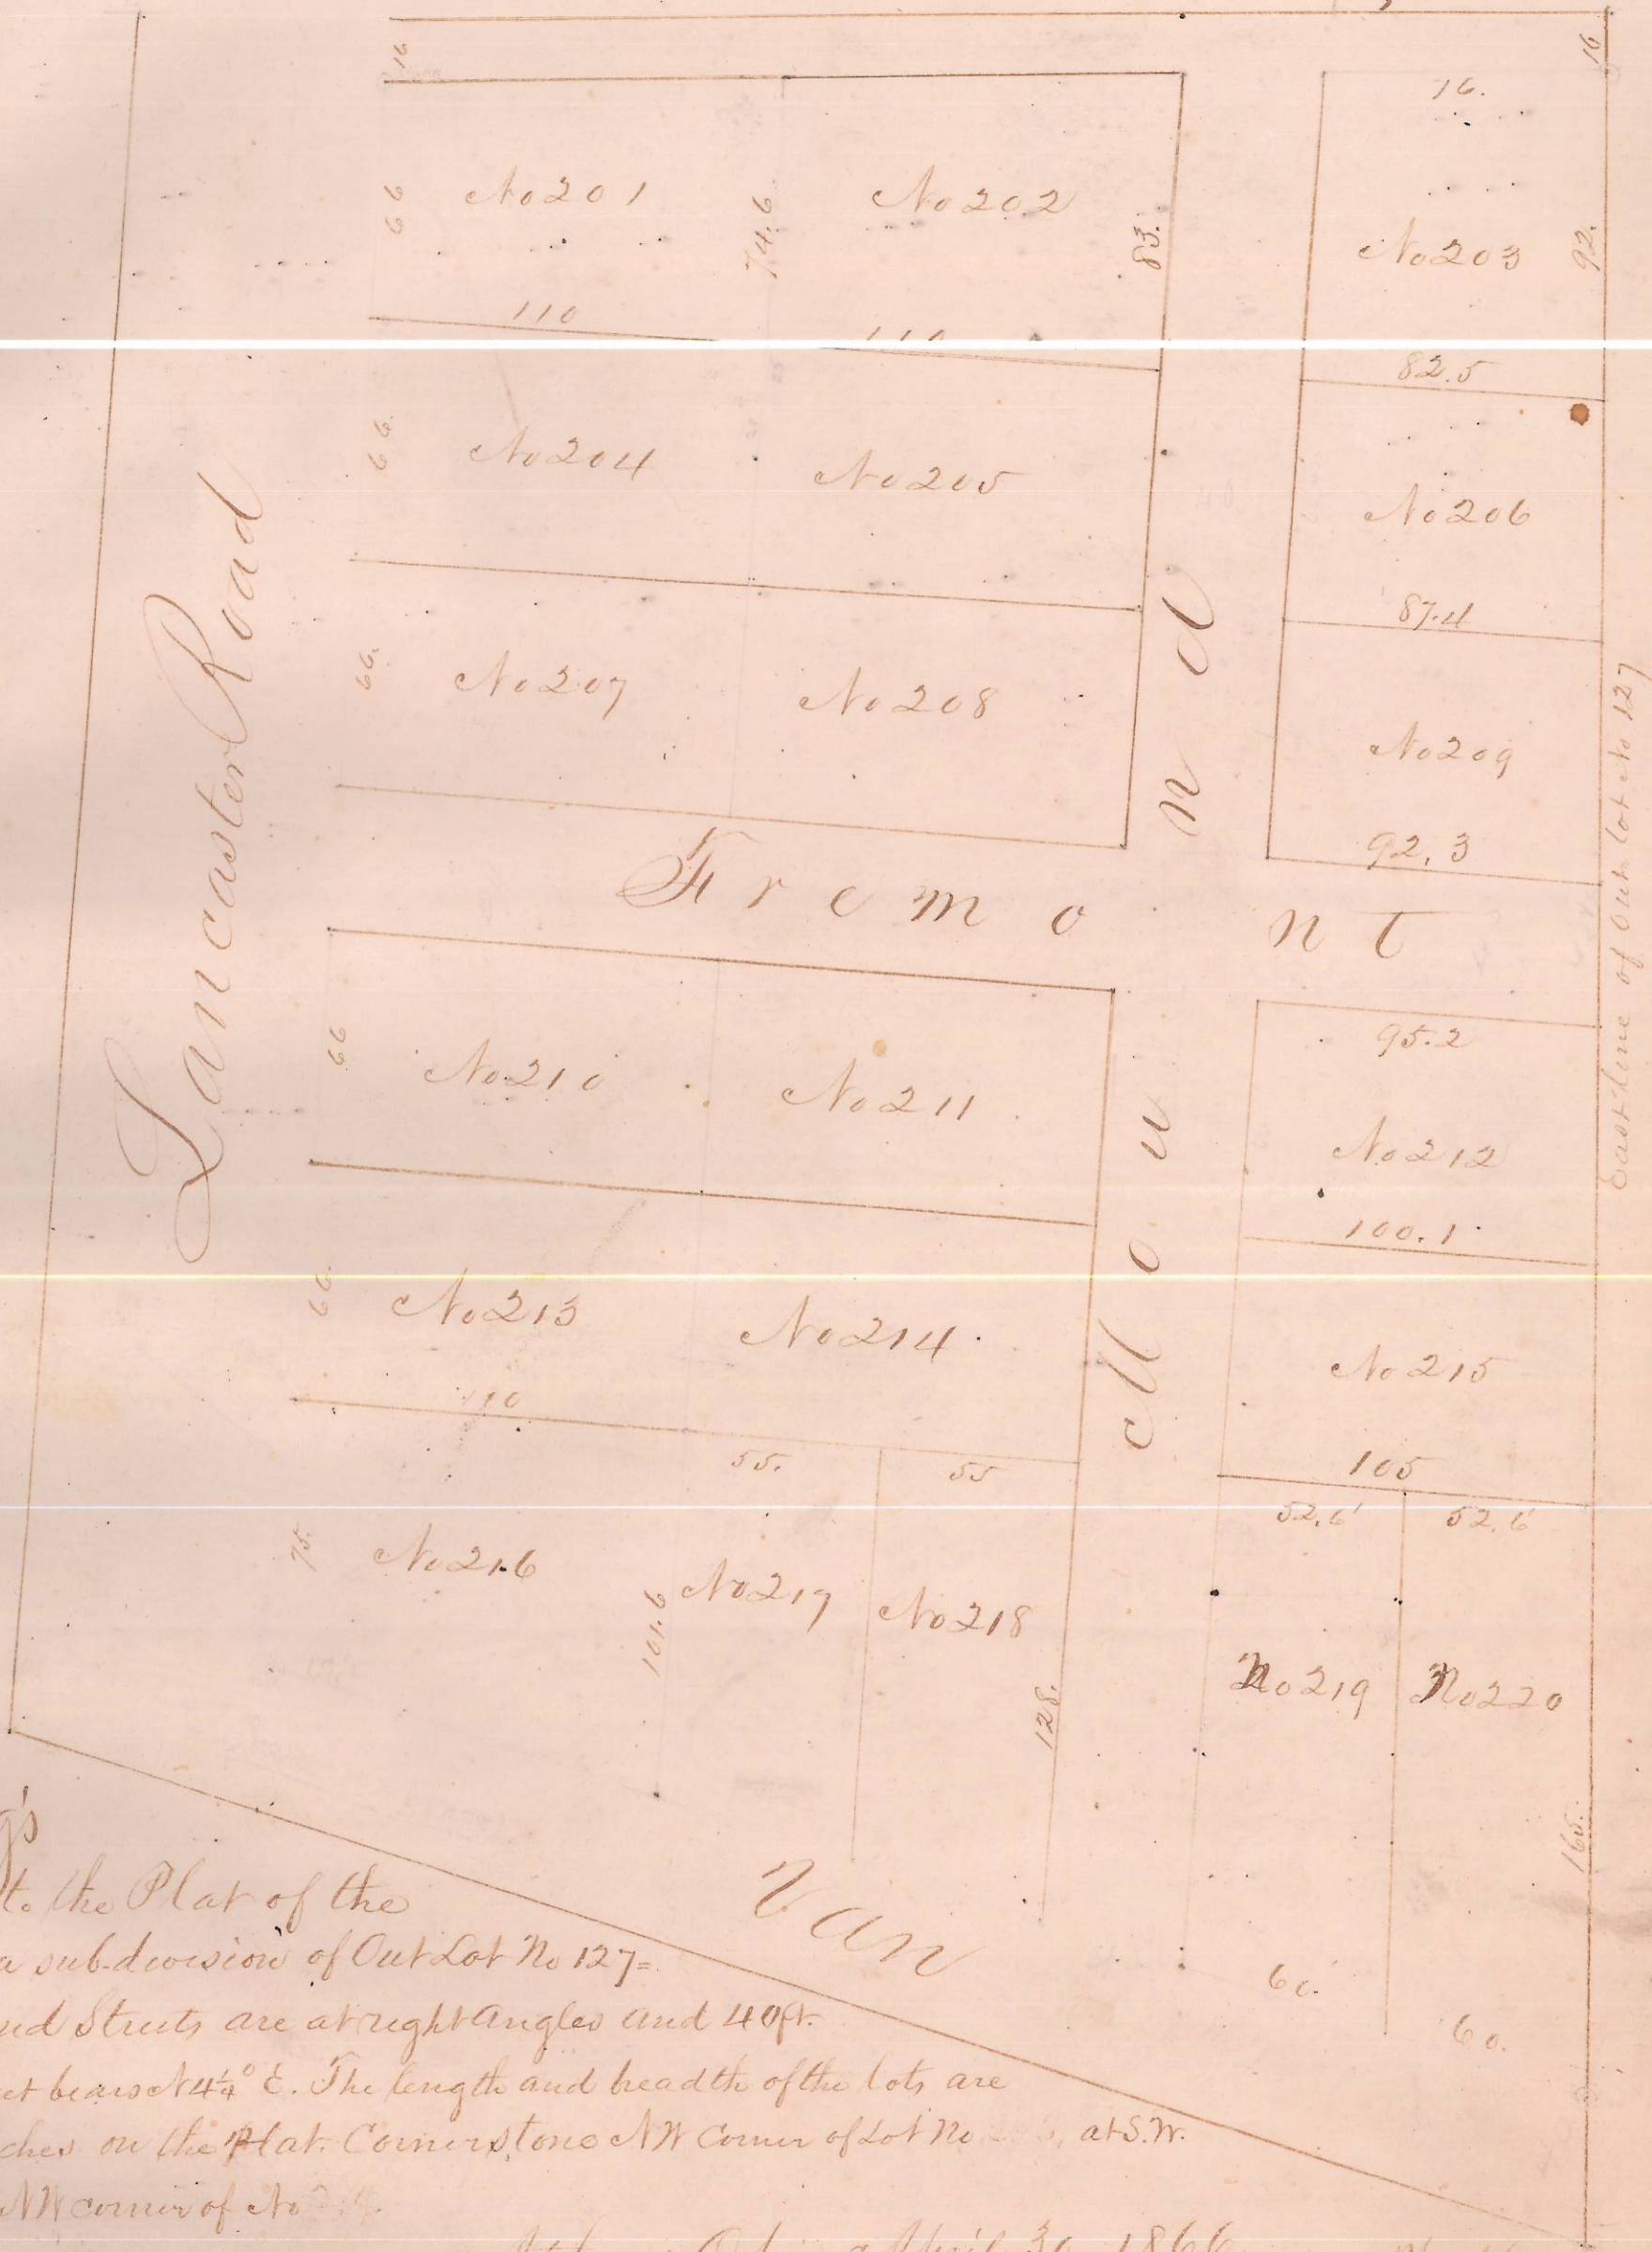 16
16
76.
66
No 201
74.6
No 202
83.
No 203
92.
110
110
82.5
66.
No 204
No 205
No 206
87.4
Lancaster Road
66.
No 207
No 208
No 209
92.3
East line of Out lot No 127
Fremont
Mound
95.2
66
No 210
No 211
No 212
100.1
66.
No 213
No 214
No 215
110
55.
55
105
52.6
52.6
75.
No 216
101.6
No 217
No 218
128.
No 219
No 220
165.
g's
to the Plat of the
Van
a sub-division of Out Lot No 127=
60.
nd Streets are at right angles and 40 ft.
60.
et bears N 4¼° E. The length and breadth of the lots are
ches on the Plat. Corner stone NW Corner of Lot No at S.W.
NW corner of No
April 30 1866